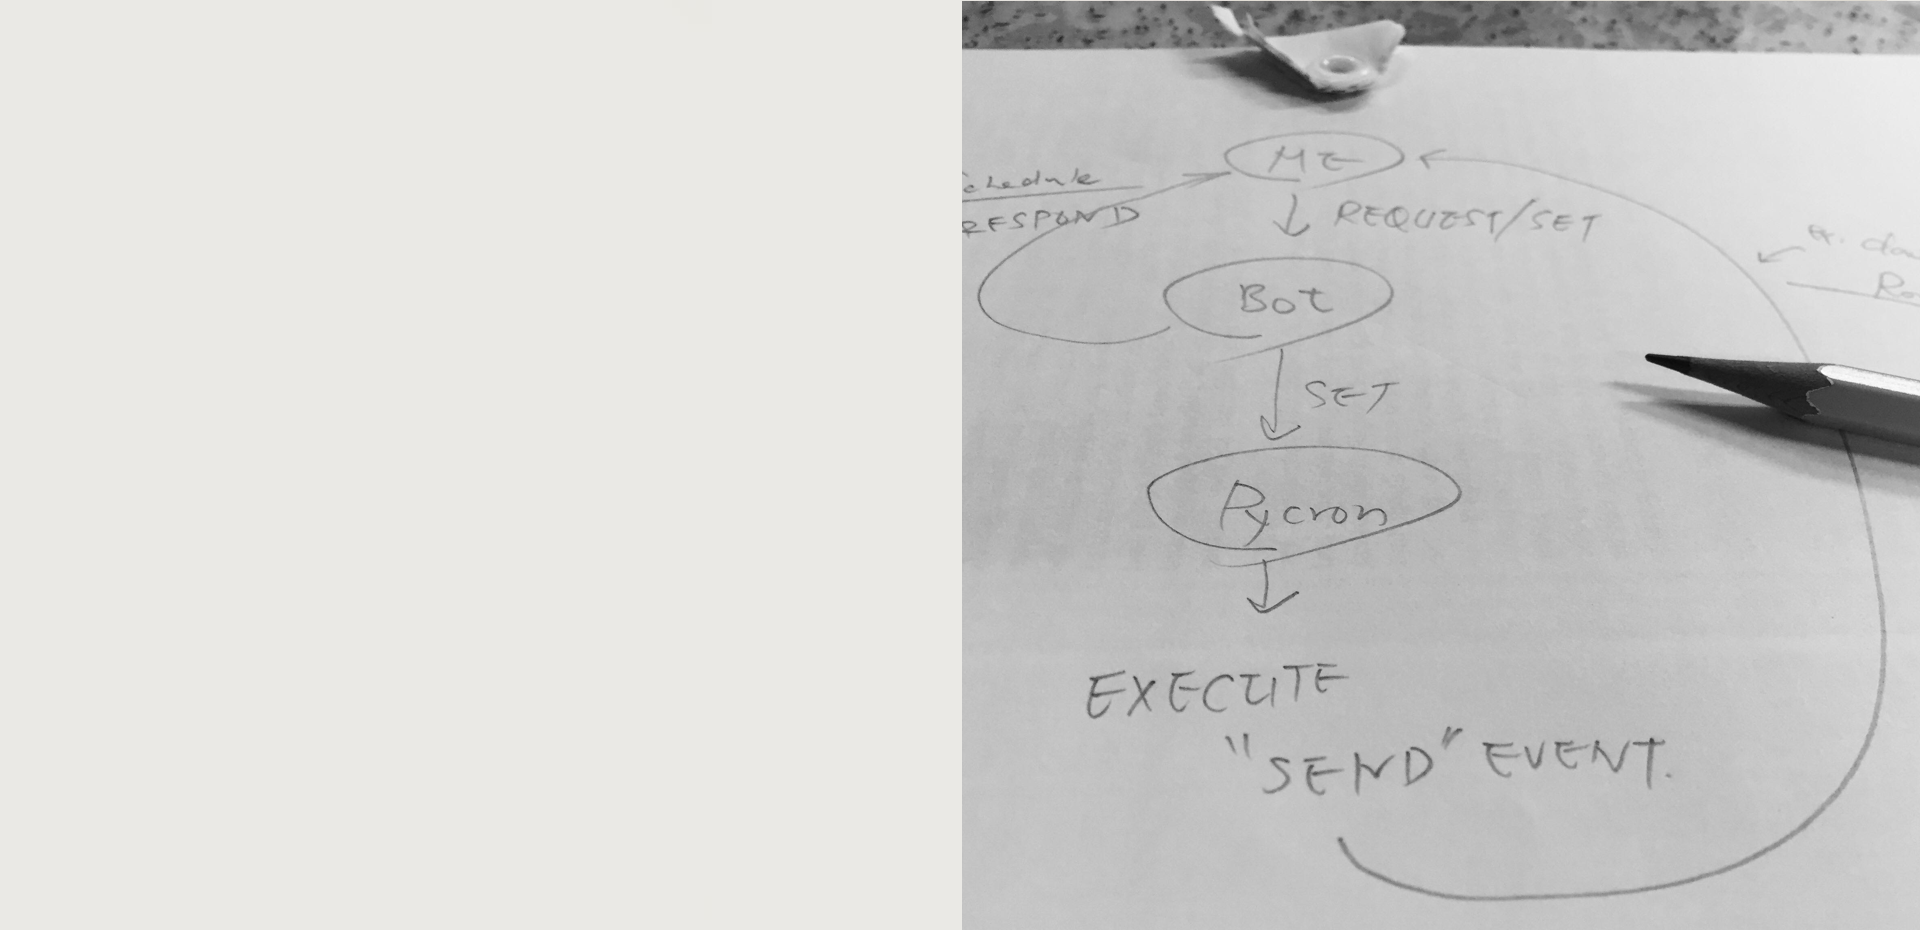 ME
RESPOND
REQUEST/SET
Bot
SET
Pycron
EXECUTE
"SEND" EVENT.